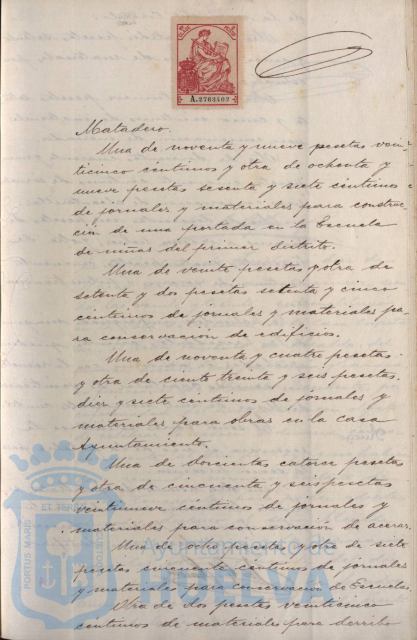 A.2763402
Matadero.
Una de noventa y nueve pesetas vein-
ticinco céntimos y otra de ochenta y
nueve pesetas sesenta y siete céntimos
de jornales y materiales para construc-
ción de una portada en la Escuela
de niñas del primer distrito.
Una de veinte pesetas y otra de
setenta y dos pesetas setenta y cinco
céntimos de jornales y materiales pa-
ra conservación de edificios.
Una de noventa y cuatro pesetas
y otra de ciento treinta y seis pesetas
diez y siete céntimos de jornales y
materiales para obras en la casa
Ayuntamiento.
Una de doscientas catorce pesetas
y otra de cincuenta y seis pesetas
veintinueve céntimos de jornales y
materiales para conservación de aceras.
Una de ocho pesetas y otra de siete
pesetas cincuenta céntimos de jornales
y materiales para conservación de Escuelas.
Otra de dos pesetas veinticinco
céntimos de materiales para derribo
Ayuntamiento de
HUELVA
PORTUS MARIS
ET TERRAE